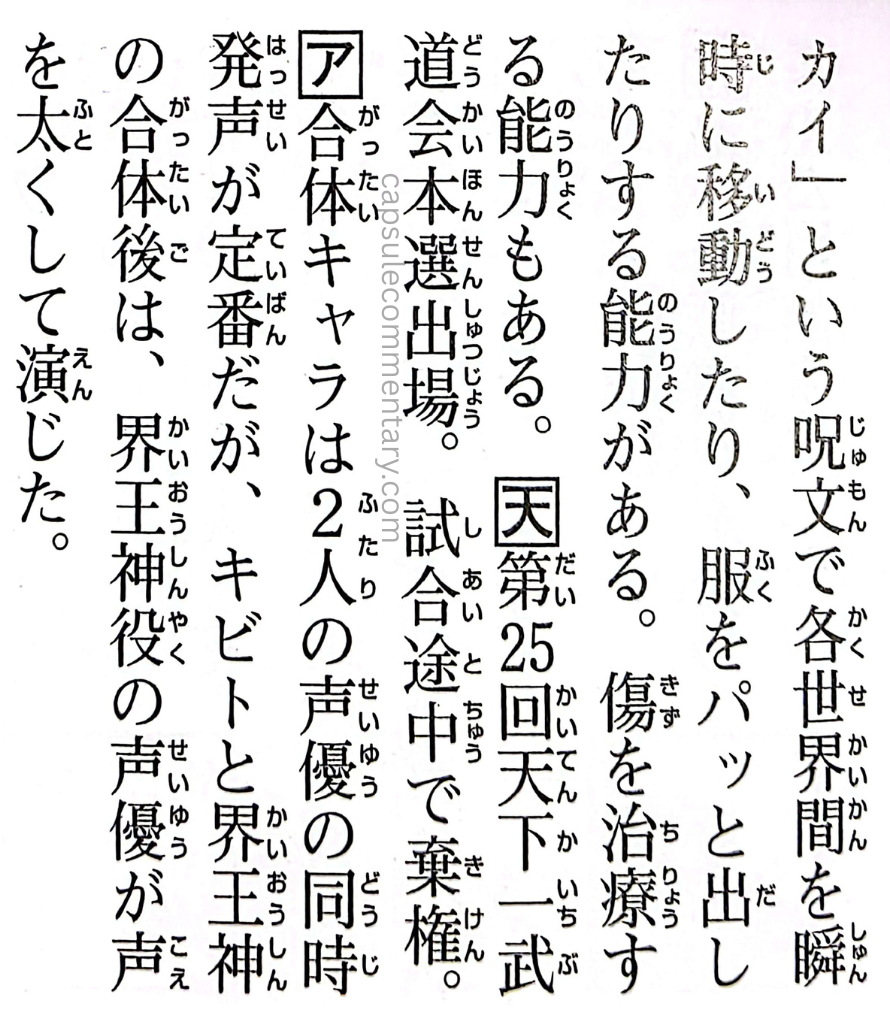 カイ」という呪文で各世界間を瞬
時に移動したり、服をパッと出し
たりする能力がある。傷を治療す
る能力もある。天第25回天下一武
道会本選出場。試合途中で棄権。
ア合体キャラは2人の声優の同時
発声が定番だが、キビトと界王神
の合体後は、界王神役の声優が声
を太くして演じた。
capsulecommentary.com